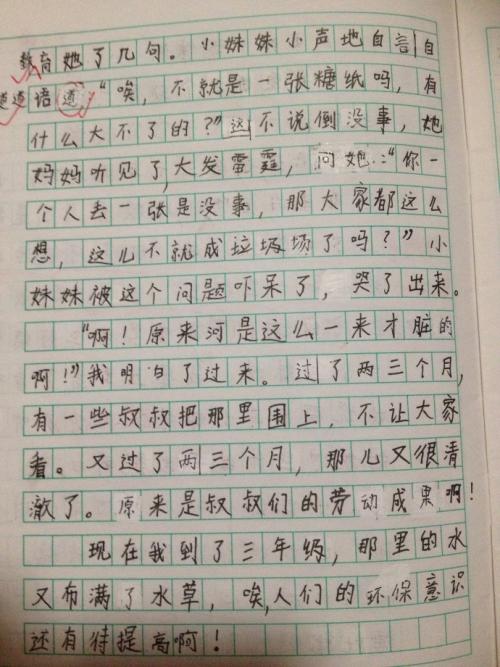 教育她了几句。小妹妹小声地自言自
道道语道“唉，不就是一张糖纸吗，有
什么大不了的？”这不说倒没事，她
妈妈听见了，大发雷霆，问她：“你一
个人丢一张是没事，那大家都这么
想，这儿不就成垃圾场了吗？”小
妹妹被这个问题吓呆了，哭了出来。
“啊！原来河是这么一来才脏的
啊！”我明白了过来。过了两三个月，
有一些叔叔把那里围上，不让大家
看。又过了两三个月，那儿又很清
澈了。原来是叔叔们的劳动成果啊！
现在我到了三年级，那里的水
又布满了水草，唉，人们的环保意识
还有待提高啊！